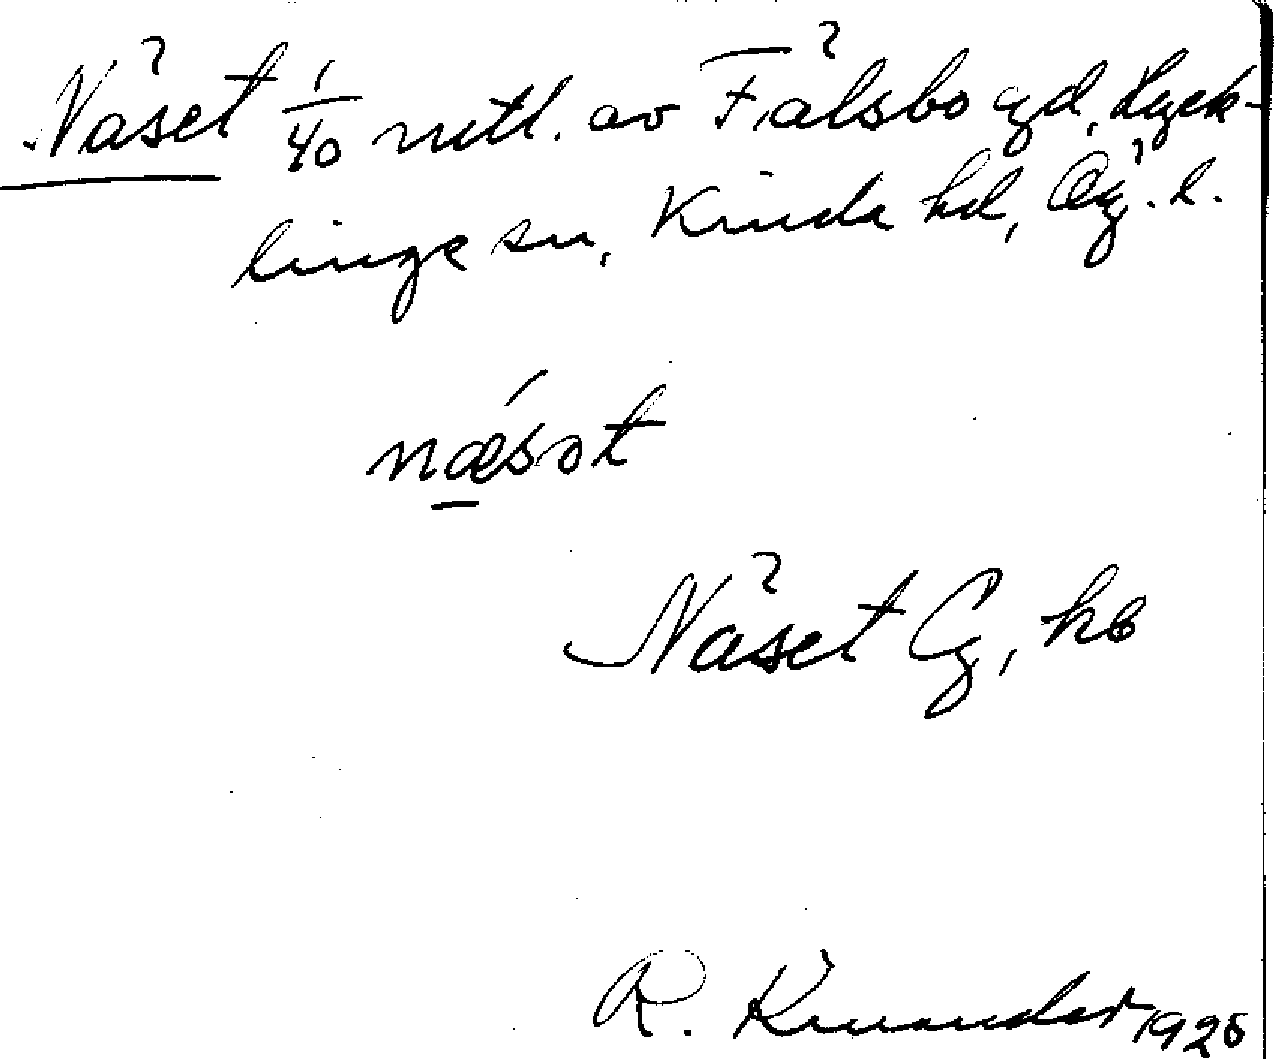 Näset 1/40 mtl. av Fälsbo gd, Hyck-
linge sn, Kinda hd, Ög. l.
nǽ̲sət
Näset Cg, hb
R. Kinander 1926